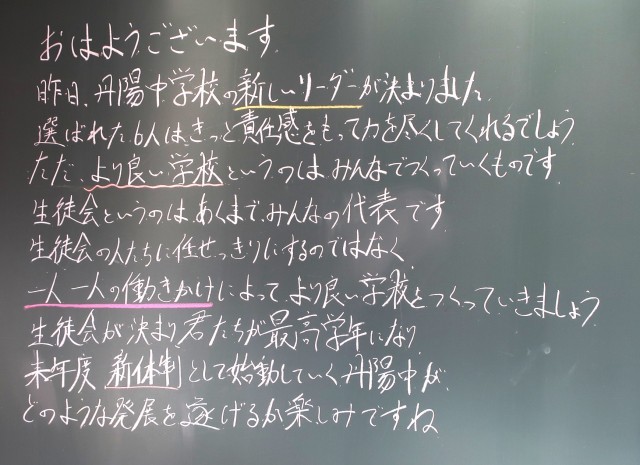 おはようございます
昨日、丹陽中学校の新しいリーダーが決まりました
選ばれた6人は、きっと責任感をもって力を尽くしてくれるでしょう
ただ、より良い学校というのは、みんなでつくっていくものです
生徒会というのは、あくまで、みんなの代表です
生徒会の人たちに任せっきりにするのではなく
一人一人の働きかけによって、より良い学校をつくっていきましょう
生徒会が決まり君たちが最高学年になり
来年度 新体制として始動していく丹陽中が、
どのような発展を遂げるか楽しみですね